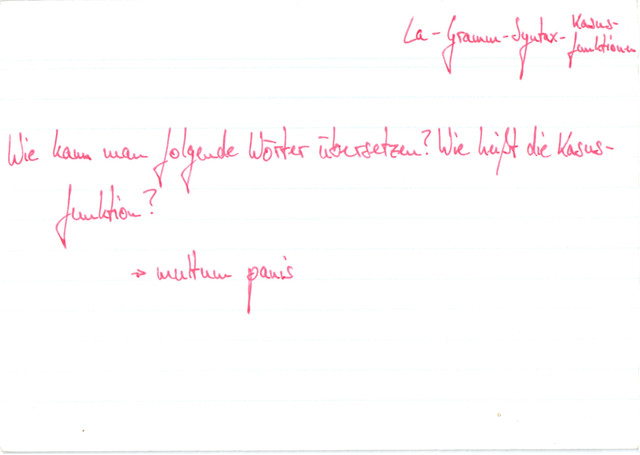 La-Gramm-Syntax-Kasus-
funktionen
Wie kann man folgende Wörter übersetzen? Wie heißt die Kasus-
funktion?
→ multum panis